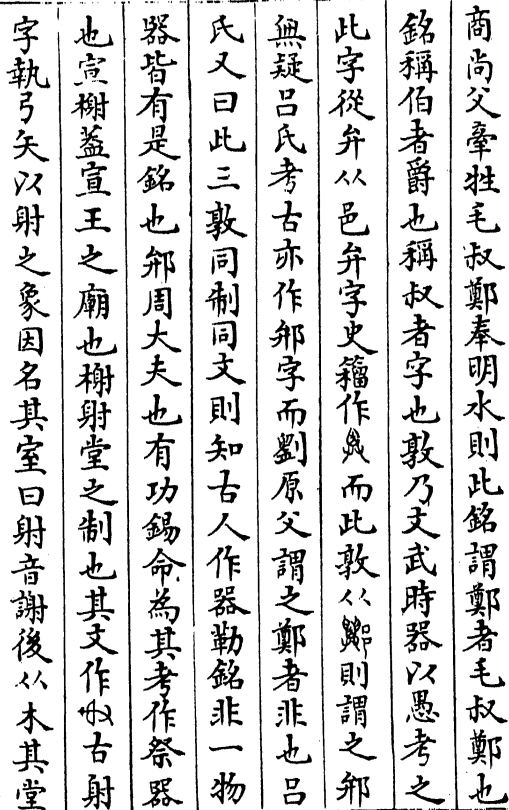 商尚父牽牲毛叔鄭奉明水則此銘謂鄭者毛叔鄭也
銘稱伯者爵也稱叔者字也敦乃文武時器以愚考之
此字從弁從邑弁字史籀作而此敦從則謂之䢴
無疑呂氏考古亦作䢴字而劉原父謂之鄭者非也呂
氏又曰此三敦同制同文則知古人作器勒銘非一物
器皆有是銘也䢴周大夫也有功錫命為其考作祭器
也宣榭葢宣王之廟也榭射堂之制也其文作古射
字執弓矢以射之象因名其室曰射音謝後從木其堂